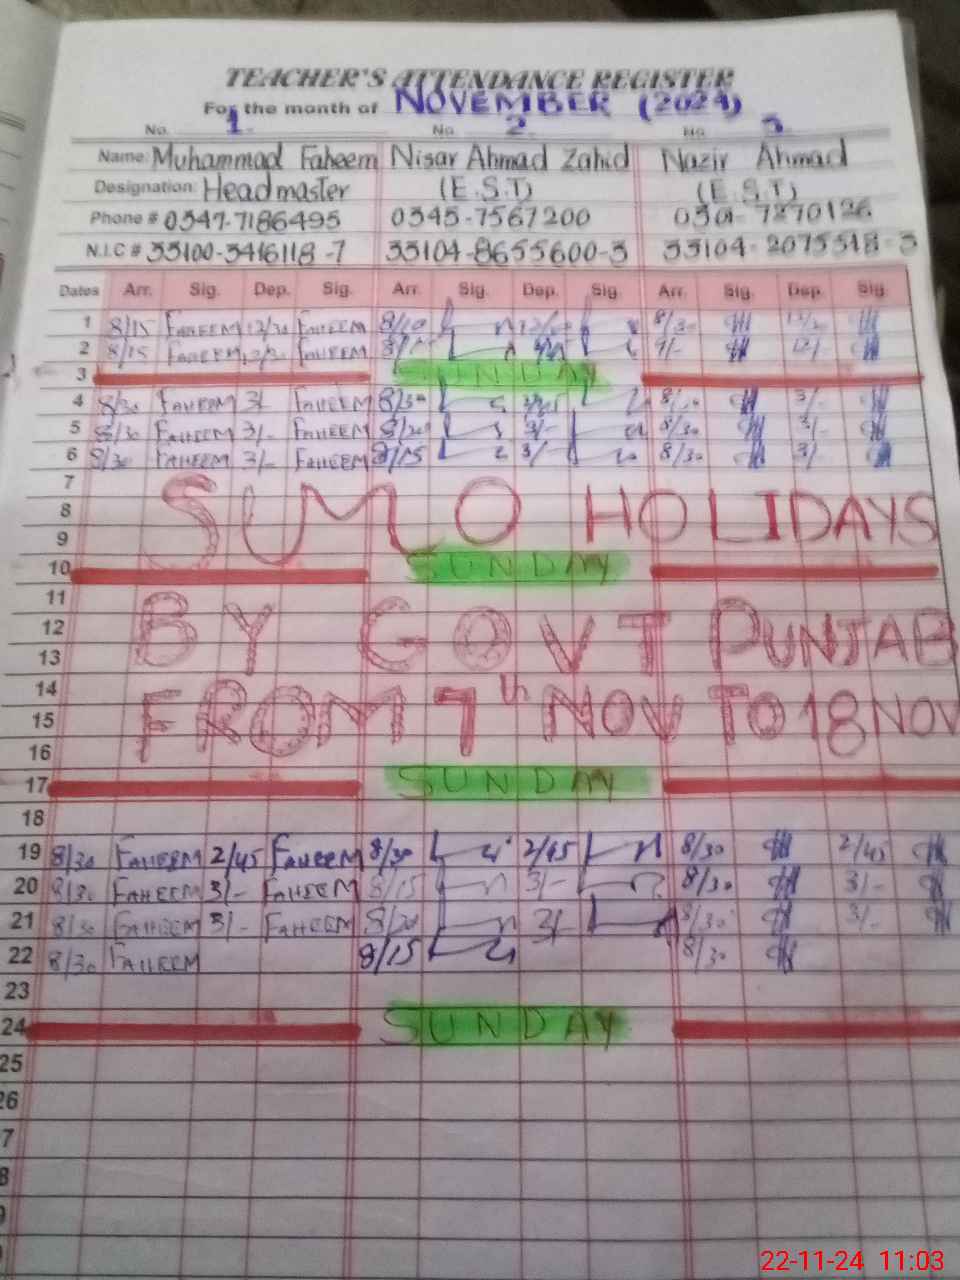 TEACHER'S ATTENDANCE REGISTER
For the month of NOVEMBER (2024)
No. 1. No. 2. No. 3.
Name: Muhammad Faheem Nisar Ahmad Zahid Nazir Ahmad
Designation: Headmaster (E.S.T) (E.S.T)
Phone # 0347-7186495 0345-7567200 0301-7270126
N.I.C # 33100-3416118-7 33104-8655600-3 33104-2075518-3
Dates Arr. Sig. Dep. Sig. Arr. Sig. Dep. Sig. Arr. Sig. Dep. Sig.
1 8/15 FAHEEM 12/30 FAHEEM 8/10
2 8/15 FAHEEM 12/30 FAHEEM 9/- 12/-
3 SUNDAY
4 8/30 FAHEEM 3/- FAHEEM 8/30 3/-
5 8/30 FAHEEM 3/- FAHEEM 8/20 3/- 8/30 3/-
6 8/30 FAHEEM 3/- FAHEEM 8/15 3/- 8/30 3/-
7
8 SUMO HOLIDAYS
9
10 SUNDAY
11
12 BY GOVT PUNJAB
13
14
15 FROM 7th NOV TO 18 NOV
16
17 SUNDAY
18
19 8/30 FAHEEM 2/45 FAHEEM 8/30 2/45 8/30 2/45
20 8/30 FAHEEM 3/- FAHEEM 8/15 3/- 8/30 3/-
21 8/30 FAHEEM 3/- FAHEEM 8/20 3/- 8/30 3/-
22 8/30 FAHEEM 8/15 8/30
23
24 SUNDAY
25
26
7
8
9
22-11-24 11:03